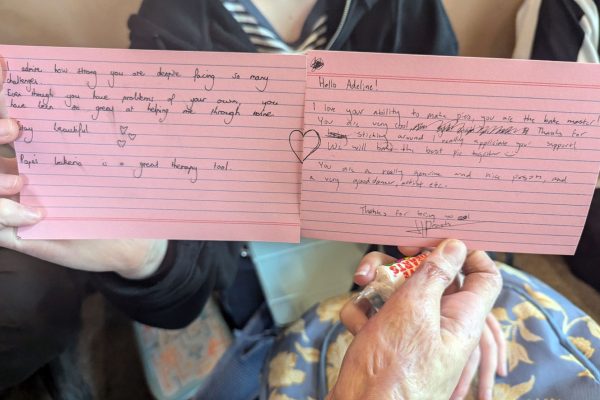 admire how strong you are despite facing so many
challenges.
Even though you have problems of your own, you
have been so great at helping me through mine.
Stay beautiful
Papa's bakeria is a great therapy tool.
Hello Adeline!
I love your ability to make pies, you are the bake master!
You are very cool Thanks for
sticking around I really appliciate your support!
We will bake the best pie together
You are a really genuine and nice person, and
a very good doner, artist etc.
Thanks for being so